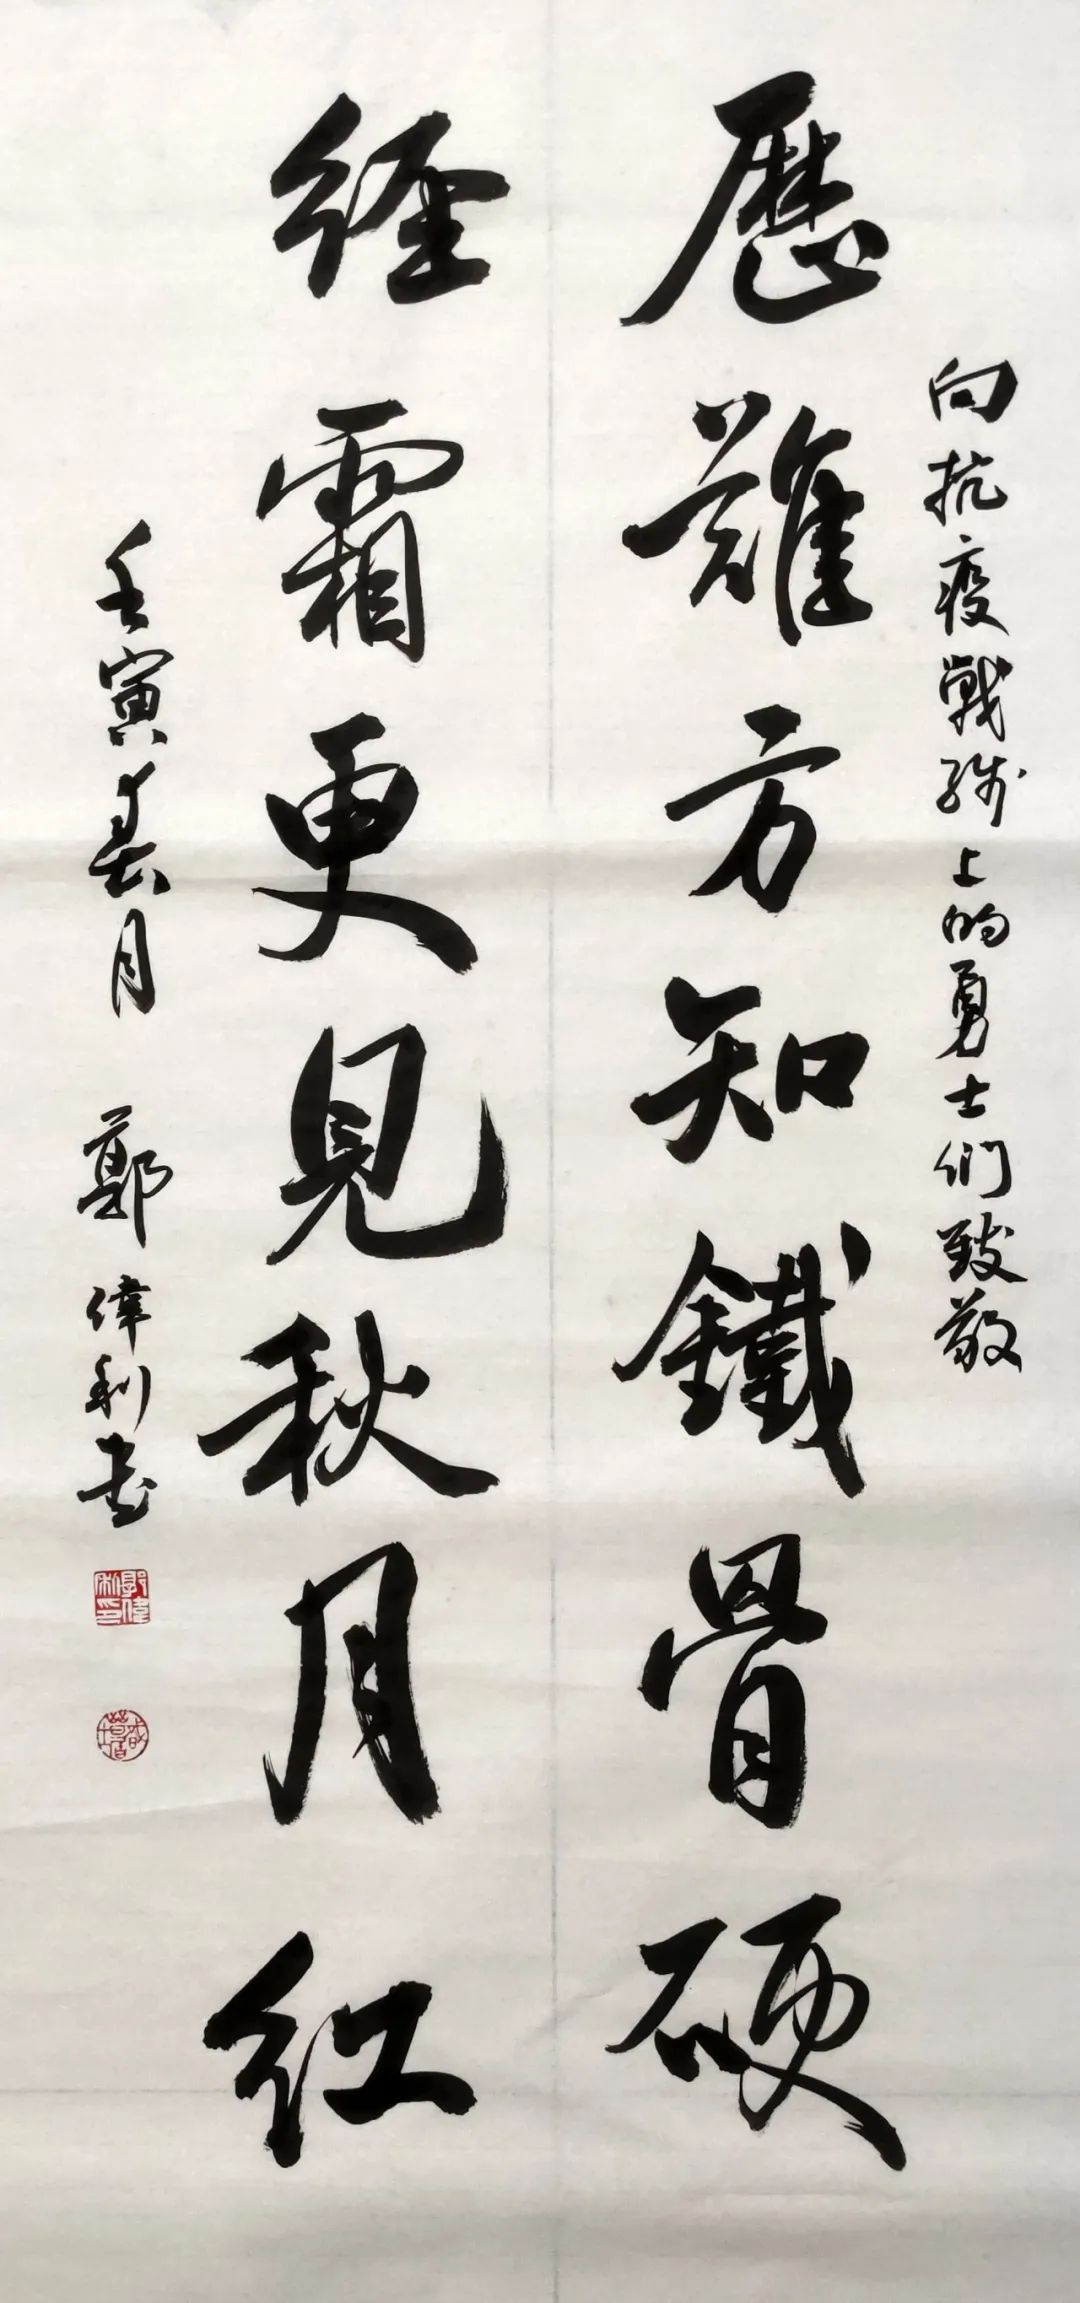 向抗疫戰线上的勇士們致敬
歷難方知鐵骨硬
經霜更見秋月红
壬寅春月 鄭偉利書